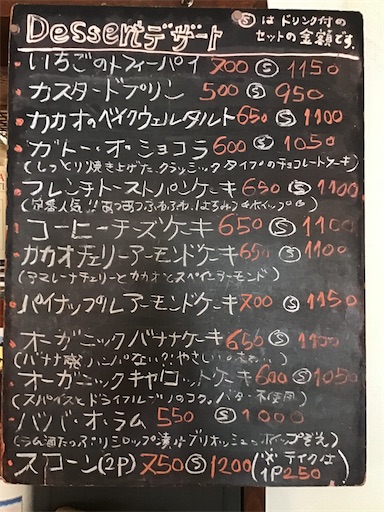 Dessert デザート
Ⓢはドリンク付の
セットの金額です。
いちごのトフィーパイ 700 Ⓢ 1150
カスタードプリン 500 Ⓢ 950
カカオのベイクウェルタルト 650 Ⓢ 1100
ガトー・オ・ショコラ 600 Ⓢ 1050
(しっとり焼き上げた、クラシックタイプのチョコレートケーキ)
フレンチトーストパンケーキ 650 Ⓢ 1100
人気!!あつあつふわふわ、はちみつ&ホイップ
コーヒーチーズケーキ 650 Ⓢ 1100
カカオチェリーアーモンドケーキ 650 Ⓢ 1100
(アマレーナチェリーとカカオとスペインアーモンド)
パイナップルアーモンドケーキ 700 Ⓢ 1150
オーガニックバナナケーキ 650 Ⓢ 1100
(バナナ感ハンパない!?やさしい
オーガニックキャロットケーキ 600 Ⓢ 1050
(スパイスとドライフルーツのコク。バター不使用)
ババ・オ・ラム 550 Ⓢ 1000
(ラム酒たっぷりシロップ漬けブリオッシュ・ホイップ添え)
スコーン(2P) 750 Ⓢ 1200 (※テイクは
1P 250)